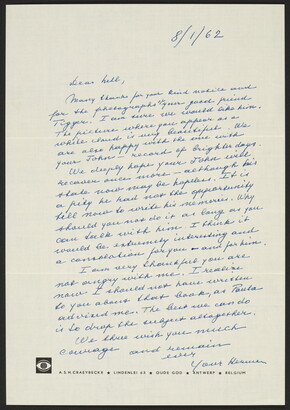 8/1/62
Dear Nell,
Many thanks for your kind notice and
for the photographs of your good friend
Tigger. I am sure we would like him.
The picture where you appear as a
white cloud is very beautiful. We
are also happy with the one with
your John – record of brighter days.
We deeply hope your John will
recover once more – although his
state now may be hopeless. It is
a pity he had not the opportunity
till now to write his memoires. Why
should you not do it as long as you
can talk with him. I think it
would be extremely interesting and
a consolation for you – and for him.
I am very thankful you are
not angry with me. I realize
now I should not have written
to you about that book, as Paula
advised me. The best we can do
is to drop the subject altogether.
We three wish you much
courage and remain
ever
Yours
A.S.H. CRAEYBECKX • LINDENLEI 53 • OUDE GOD • ANTWERP • BELGIUM